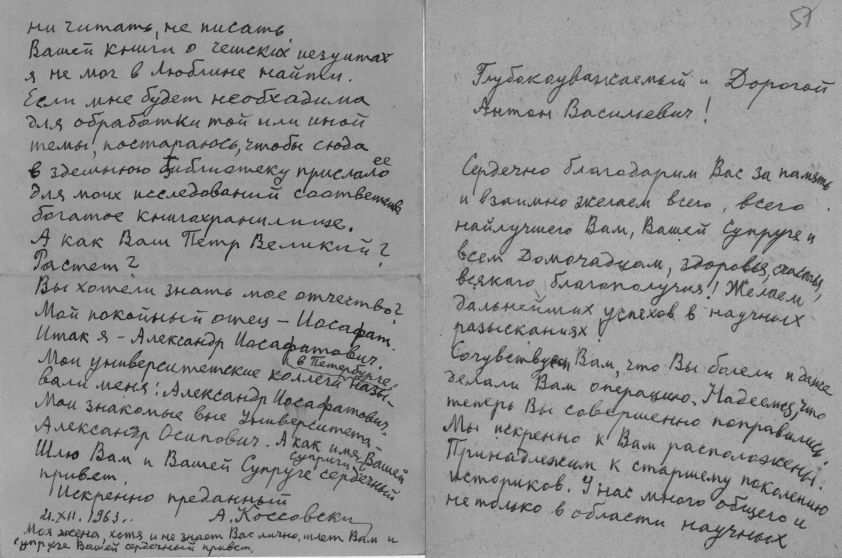 ни читать, не писать.
Вашей книги о чешских иезуитах
я не мог в Люблине найти.
Если мне будет необхадима
для обработки той или иной
темы, постараюсь, чтобы сюда
в здешнюю библиотеку прислало ее
для моих исследований соответств.
богатое книгахранилище.
А как Ваш Петр Великий?
Растет?
Вы хотели знать мое отчество?
Мой покойный отец – Иосафат.
Итак я – Александр Иосафатович.
Мои университетские коллеги в Петербурге назы-
вали меня: Александр Иосафатович,
Мои знакомые вне университета –
Александр Осипович. А как имя Вашей
супруги?
Шлю Вам и Вашей Супруге сердечный
привет.
Искренно преданный
21.XII.1963г. А. Коссовски
Моя жена, хотя и не знает Вас лично, шлет Вам и
супруге Вашей сердечный привет.
57
Глубокоуважаемый и Дорогой
Антон Васильевич!
Сердечно благодарим Вас за память
и взаимно желаем всего, всего
найлучшего Вам, Вашей Супруге и
всем Домочадцам, здоровья, счастья,
всякаго благополучия! Желаем
дальнейших успехов в научных
разысканиях!
Сочувствуем Вам, что Вы болели и даже
делали Вам операцию. Надеемся, что
теперь Вы совершенно поправились.
Мы искренно к Вам расположены.
Принадлежим к старшему поколению
историков. У нас много общего и
не только в области научных